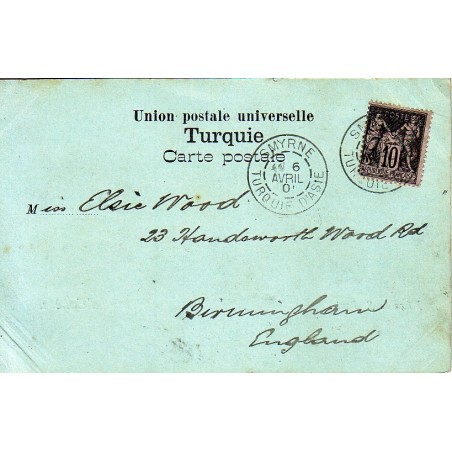 Union postale universelle
Turquie
Carte postale
SMYRNE
6
AVRIL
0
TURQUIE D'ASIE
POSTES
10
Miss Elsie Wood
23 Handsworth Wood Rd
Birmingham
England